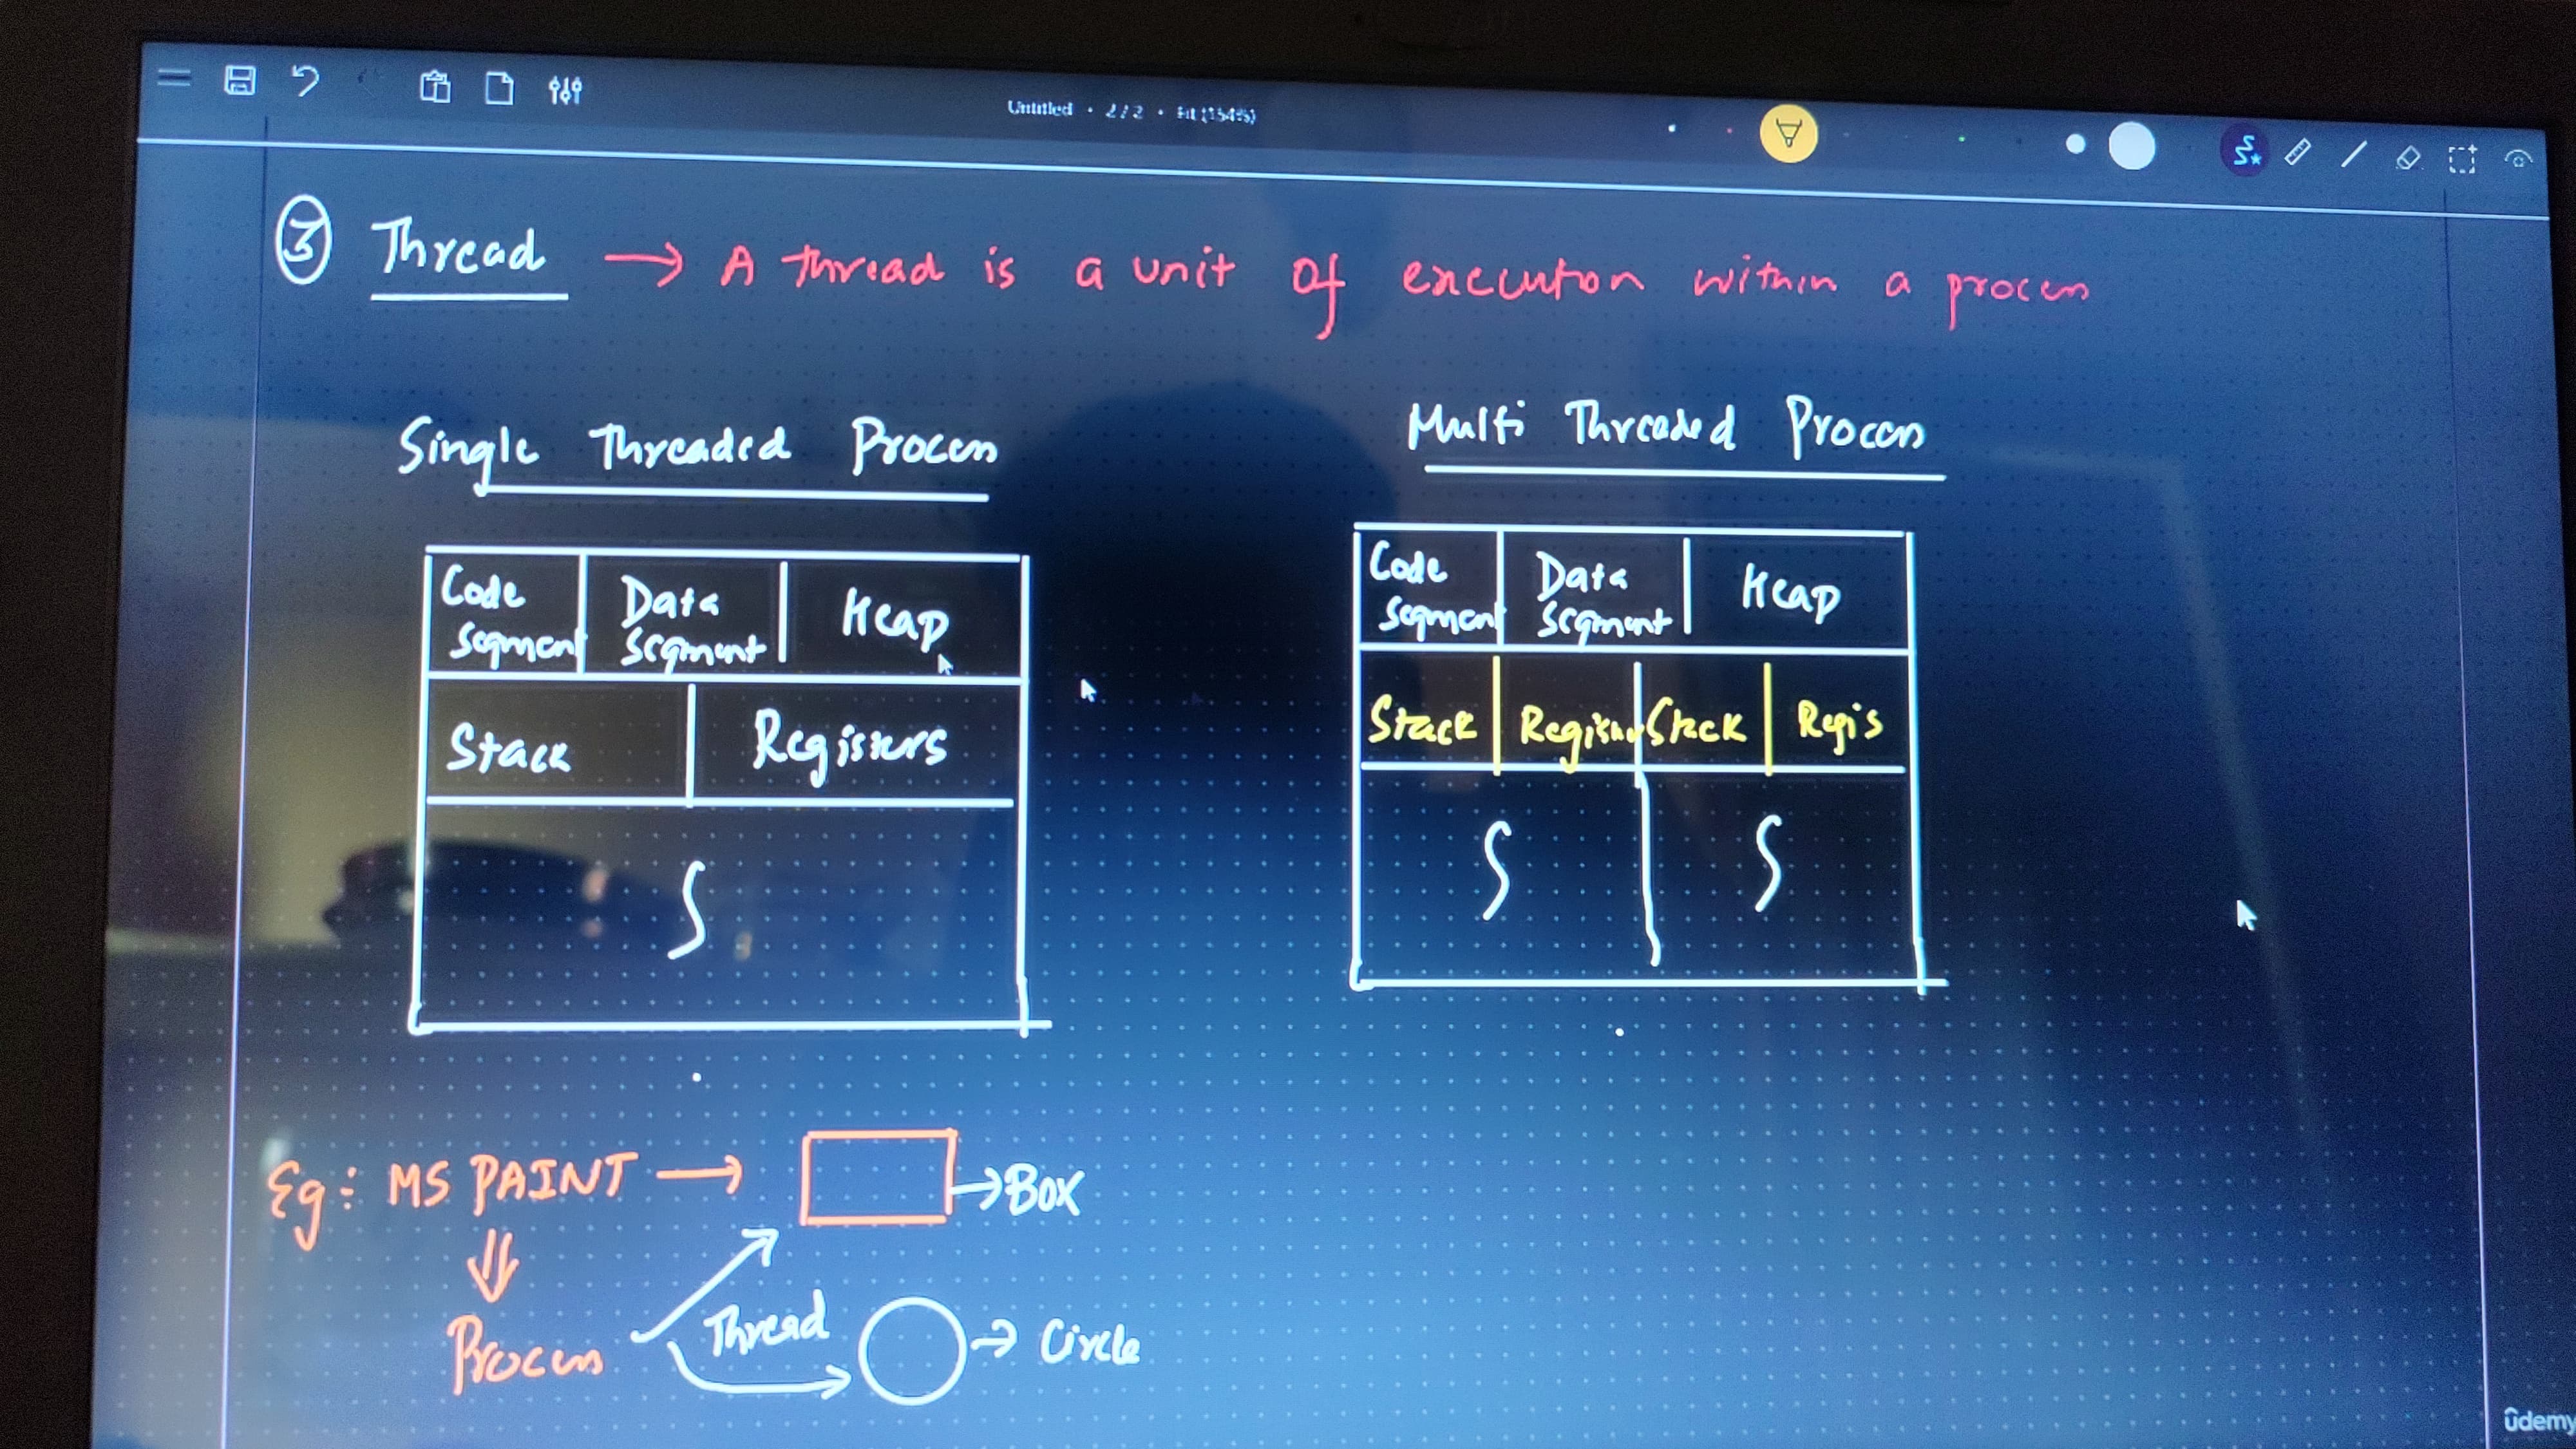 Untitled • 2 / 2 • Fit (154%)
③ Thread → A thread is a unit of execution within a process
Single Threaded Process
Code Segment
Data Segment
Heap
Stack
Registers
Multi Threaded Process
Code Segment
Data Segment
Heap
Stack
Register
Stack
Regis
Eg: MS PAINT →
→ Box
Process
Thread
→ Circle
ûdemy